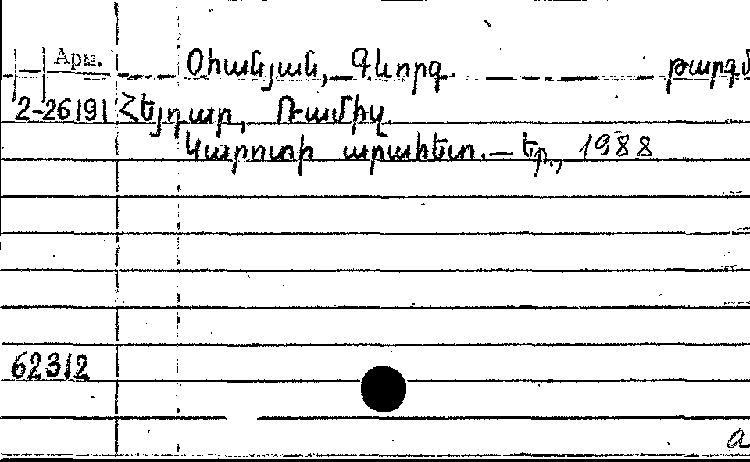 Арм. Օհանյան, Գևորգ թարգմ
2-26191 Հեյդար, Ռամիզ
Կարոտի արահետ. – Եր., 1988
62312
a